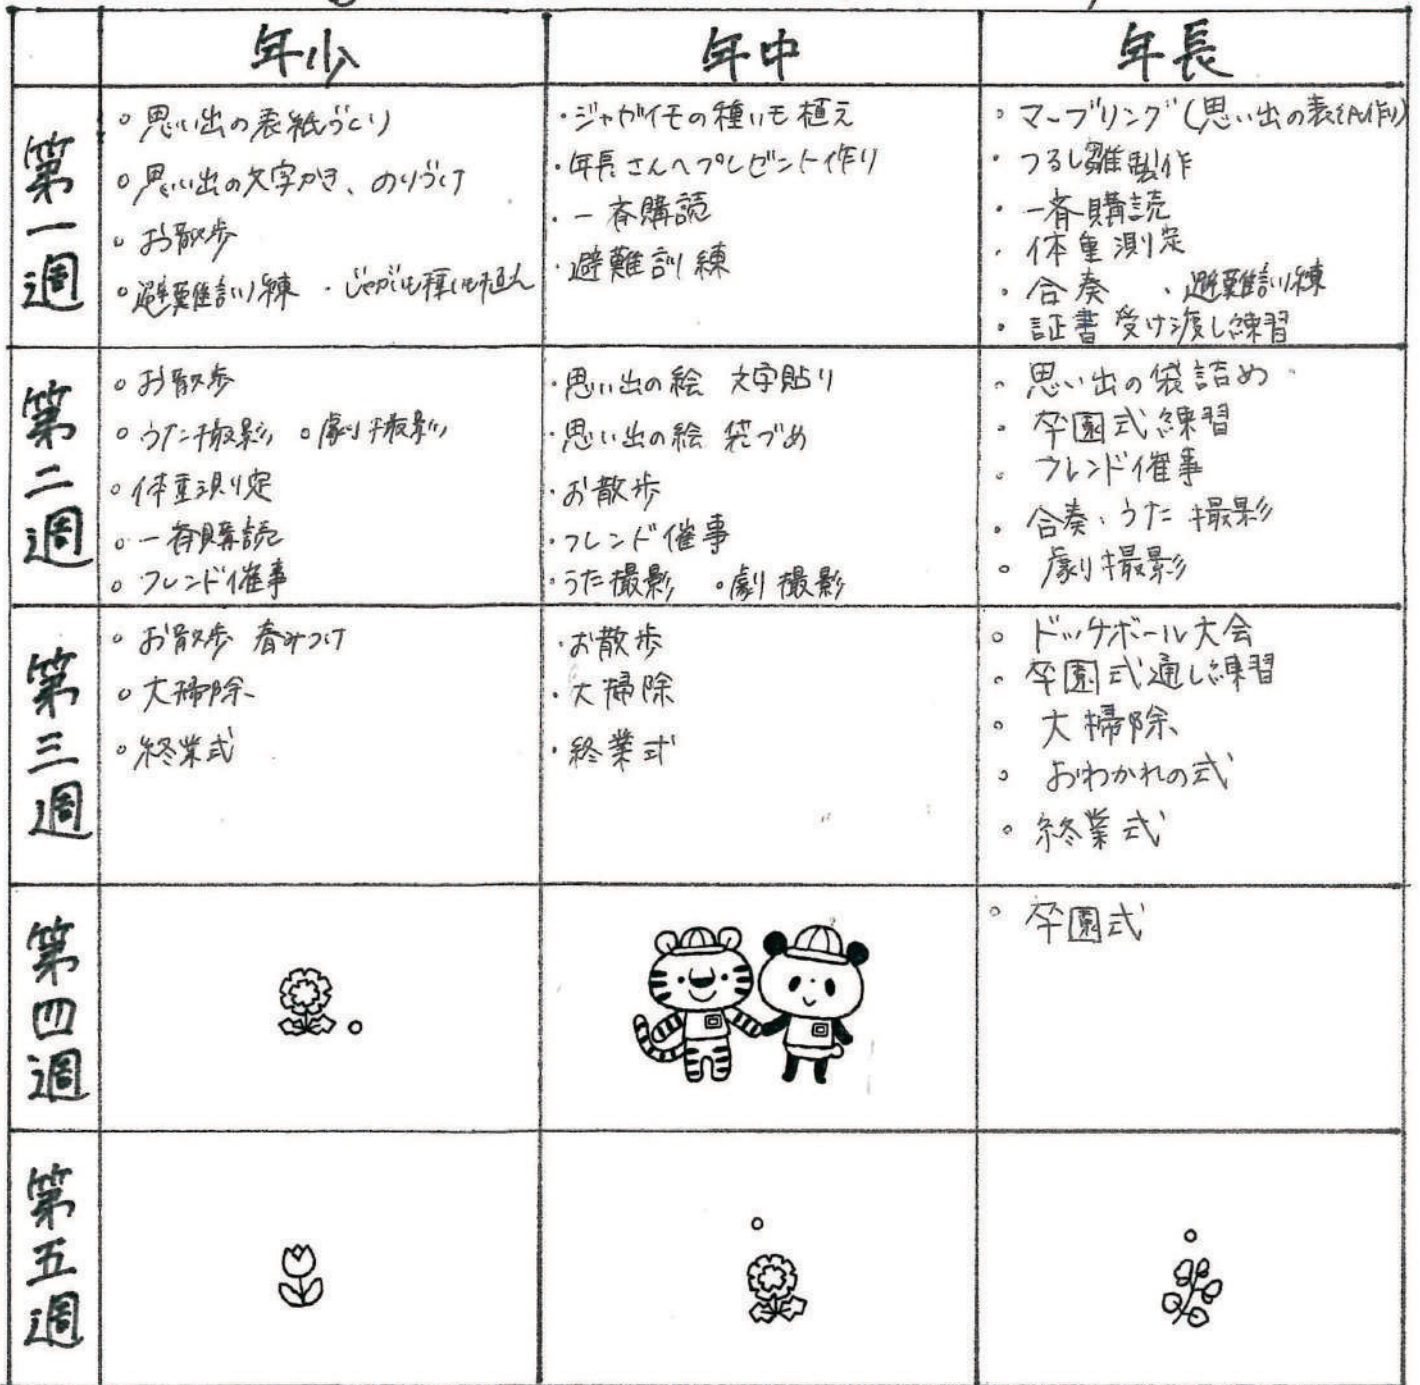 年少 年中 年長
第一週
・思い出の表紙づくり
・思い出の文字かき、のりづけ
・お散歩
・避難訓練 ・じゃがいも種いも植え
・ジャガイモの種いも植え
・年長さんへプレゼント作り
・一斉購読
・避難訓練
・マーブリング(思い出の表紙作り)
・つるし雛製作
・一斉購読
・体重測定
・合奏 ・避難訓練
・証書受け渡し練習
第二週
・お散歩
・うた撮影 ・劇撮影
・体重測定
・一斉購読
・フレンド催事
・思い出の絵 文字貼り
・思い出の絵 袋づめ
・お散歩
・フレンド催事
・うた撮影 ・劇撮影
・思い出の袋詰め
・卒園式練習
・フレンド催事
・合奏・うた撮影
・劇撮影
第三週
・お散歩 春みつけ
・大掃除
・終業式
・お散歩
・大掃除
・終業式
・ドッチボール大会
・卒園式通し練習
・大掃除
・おわかれの式
・終業式
第四週
・卒園式
第五週